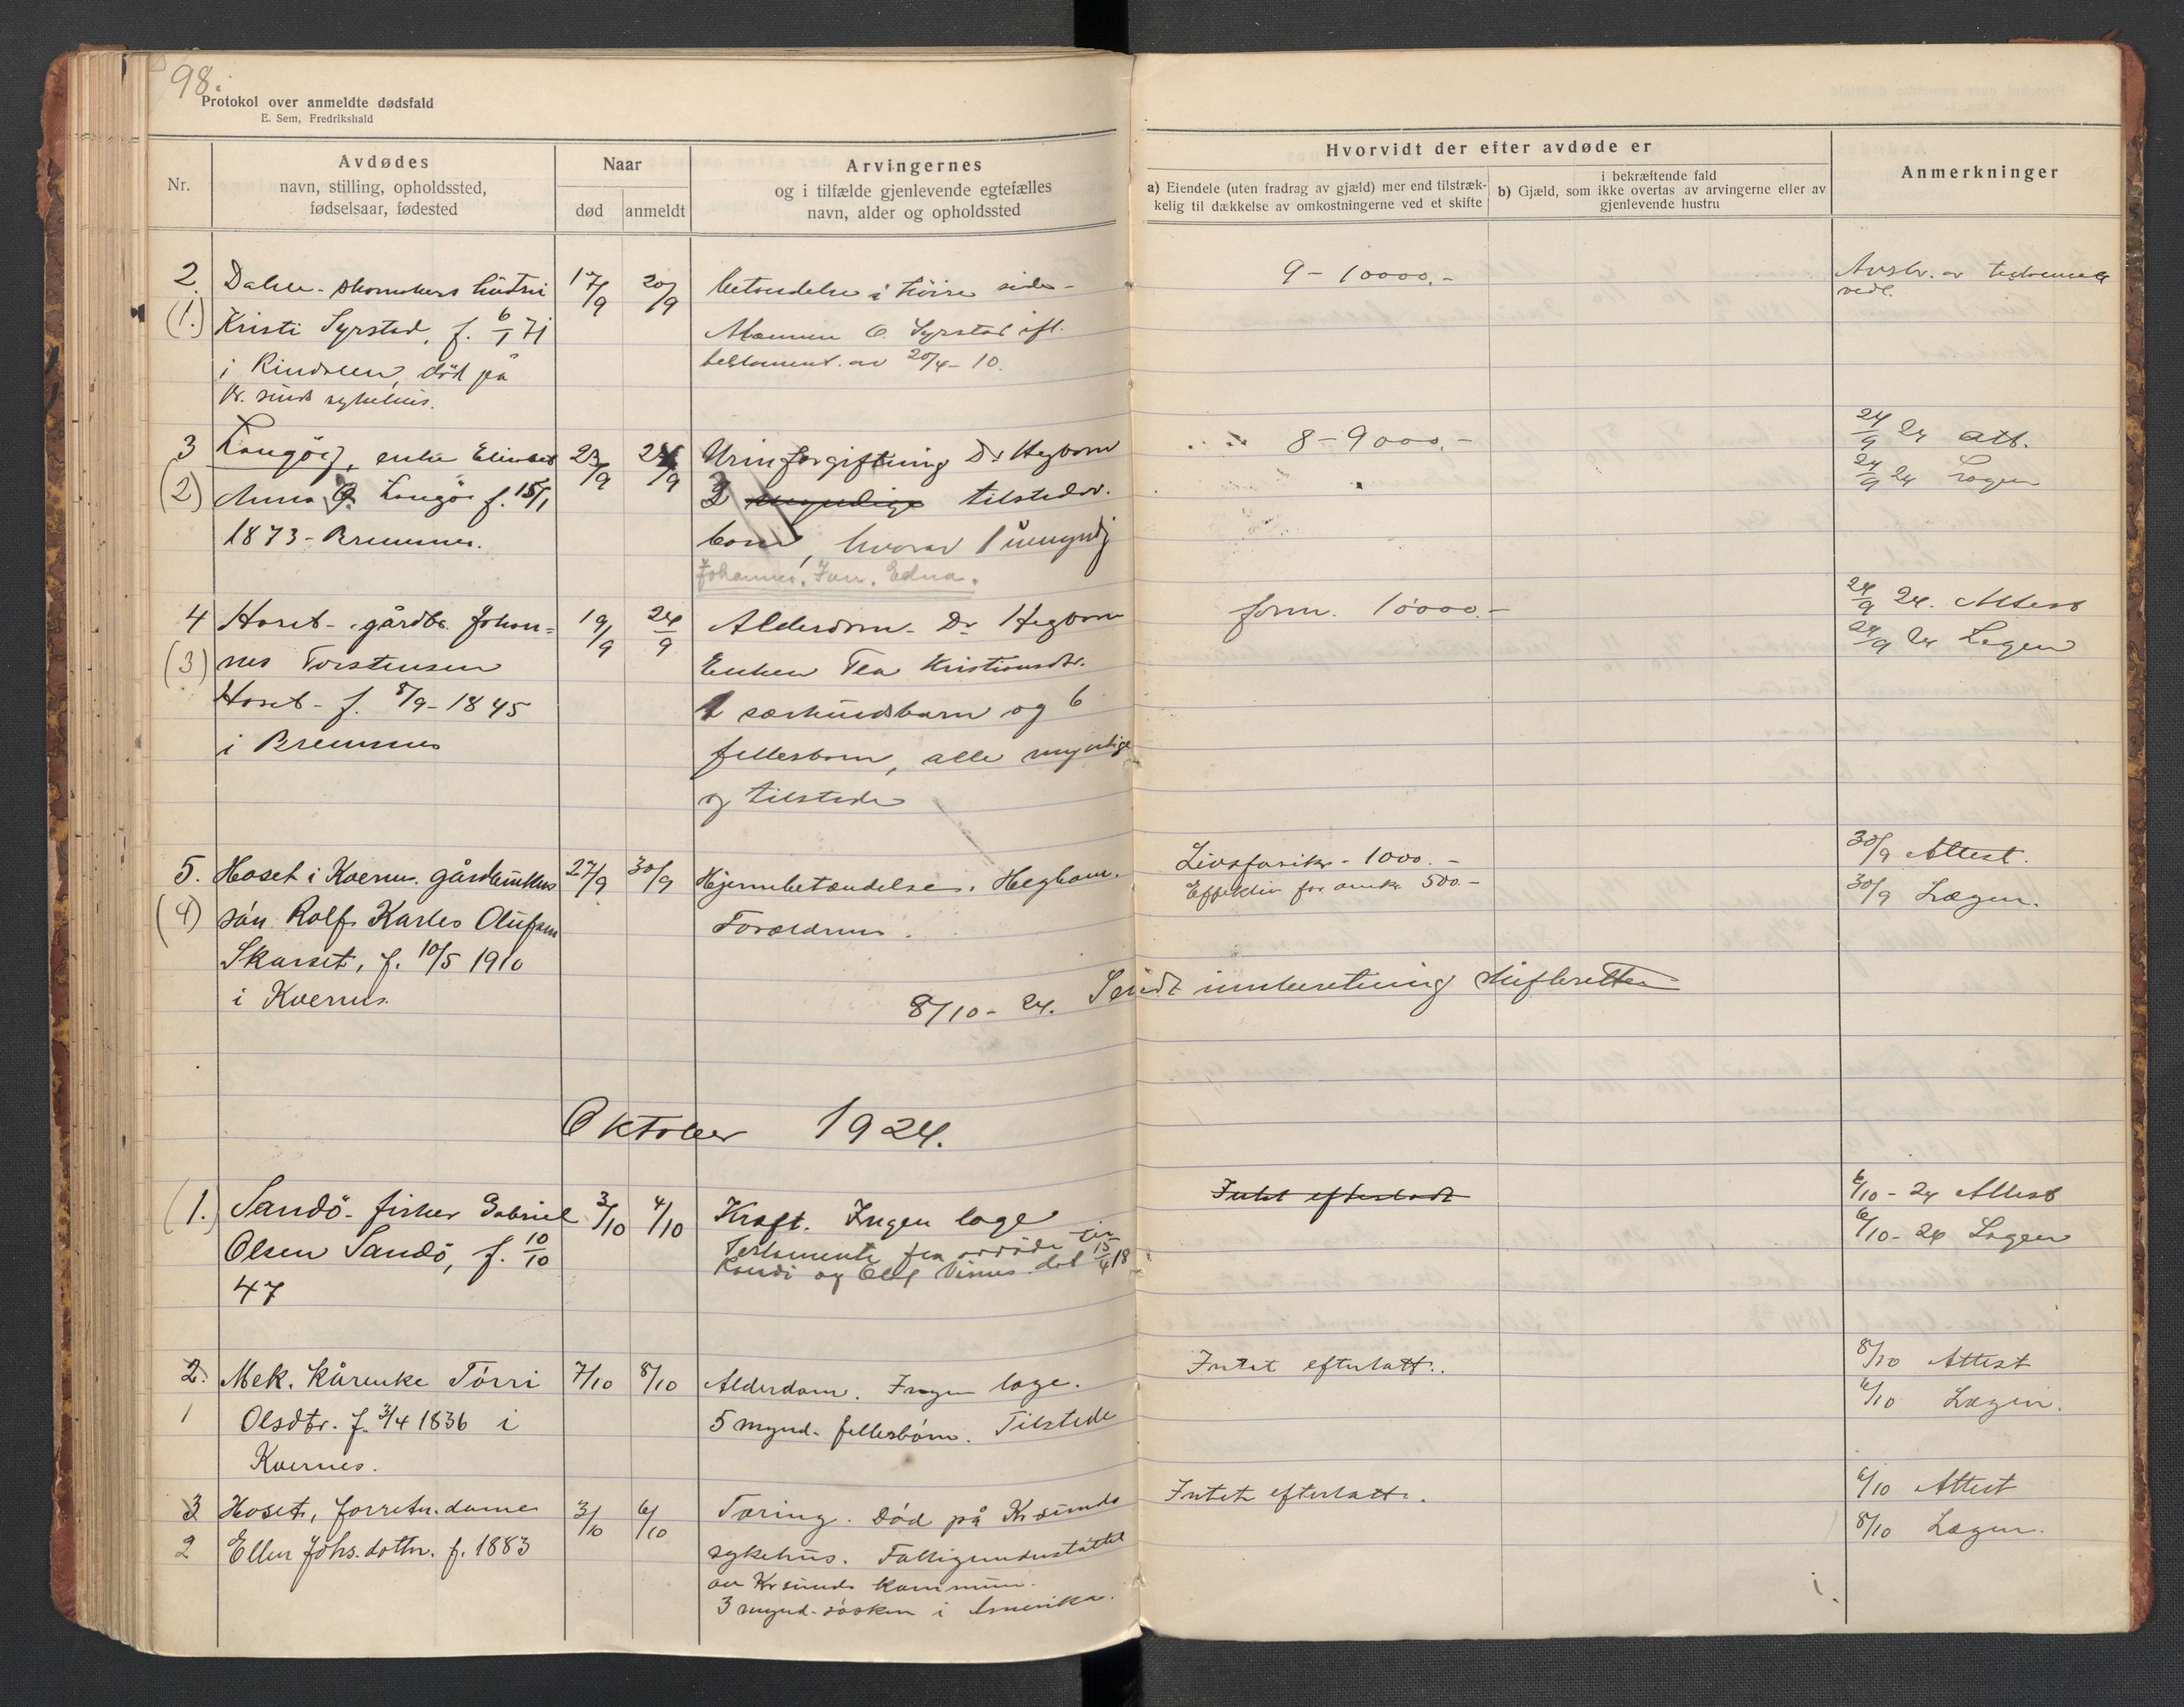 98.
Protokol over anmeldte dødsfald
E. Sem, Fredrikshald
Nr.
Avdødes
navn, stilling, opholdssted,
fødselsaar, fødested
Naar
død
anmeldt
Arvingernes
og i tilfælde gjenlevende egtefælles
navn, alder og opholdssted
Hvorvidt der efter avdøde er
a) Eiendele (uten fradrag av gjæld) mer end tilstræk-
kelig til dækkelse av omkostningerne ved et skifte
i bekræftende fald
b) Gjæld, som ikke overtas av arvingerne eller av
gjenlevende hustru
Anmerkninger
2. Dalen - skomakers hustru 17/9 20/9 betendelse i høire side - 9 - 10000.- Avskr. av testamentet
(1.) Kristi Syrstad, f. 6/1 71 Mannen O. Syrstad ifl. vedl.
i Rindalen, död på testament. av 20/4 - 10.
Kr. sunds sykehus.
3 Langöy, enke Elisabet 23/9 24/9 Urinforgiftning Dr Hegbom 8 - 9000.- 24/9 24 att.
(2) Anna Langö f. 15/1 3 myndige tilstedev. 24/9 24 Lagen
1873 - Bremsnes. barn, hvorav 1 umyndig
Johannes, Jan, Edna.
4 Hoset - gårdbr. Johan= 19/9 24/9 Alderdom - Dr Hegbom form. 10000.- 24/9 24. Attest
(3) nes Torstensen Enken Tea Kristiansdtr. 24/9 24 Legen
Hoset - f. 8/9 - 1845 1 særkuldsbarn og 6
i Bremsnes fellesbarn, alle myndige
og tilstede
5. Hoset i Kvernes. gårdbrukers 27/9 30/9 Hjernebetændelse. Hegbom. Livsforsikr. - 1000.- 30/9 Attest.
(4) sön Rolf Karles Olufsen Forældrene. Effekter for omkr. 500.- 30/9 Lægen.
Skarset, f. 10/5 1910
i Kvernes.
8/10 - 24. Sendt innberetning skifteretten
Oktober 1924.
(1.) Sandö - fisker Gabriel 3/10 4/10 Kreft. Ingen læge Intet efterladt 6/10 - 24 Attest
Olsen Sandö, f. 10/10 Testamente fra avdöde til 6/10 - 24 Legen
47 Randi og Elef Visnes dat 15/4 18
2. Mek. kårenke Törri 7/10 8/10 Alderdom. Ingen læge. Intet efterlatt. 8/10 Attest
1 Olsdtr. f. 3/4 1836 i 5 mynd. fellesbörn. Tilstede 6/10 Lægen.
Kvernes.
3 Hoset, forretn. dame 3/10 6/10 Tæring. Död på Kr.sunds Intet efterlatt. 6/10 Attest
2 Ellen Johs. datter. f. 1883 sykehus. Fattigunderstöttet 8/10 Lægen.
av Kr sunds kommune.
3 mynd. sösken i Amerika.